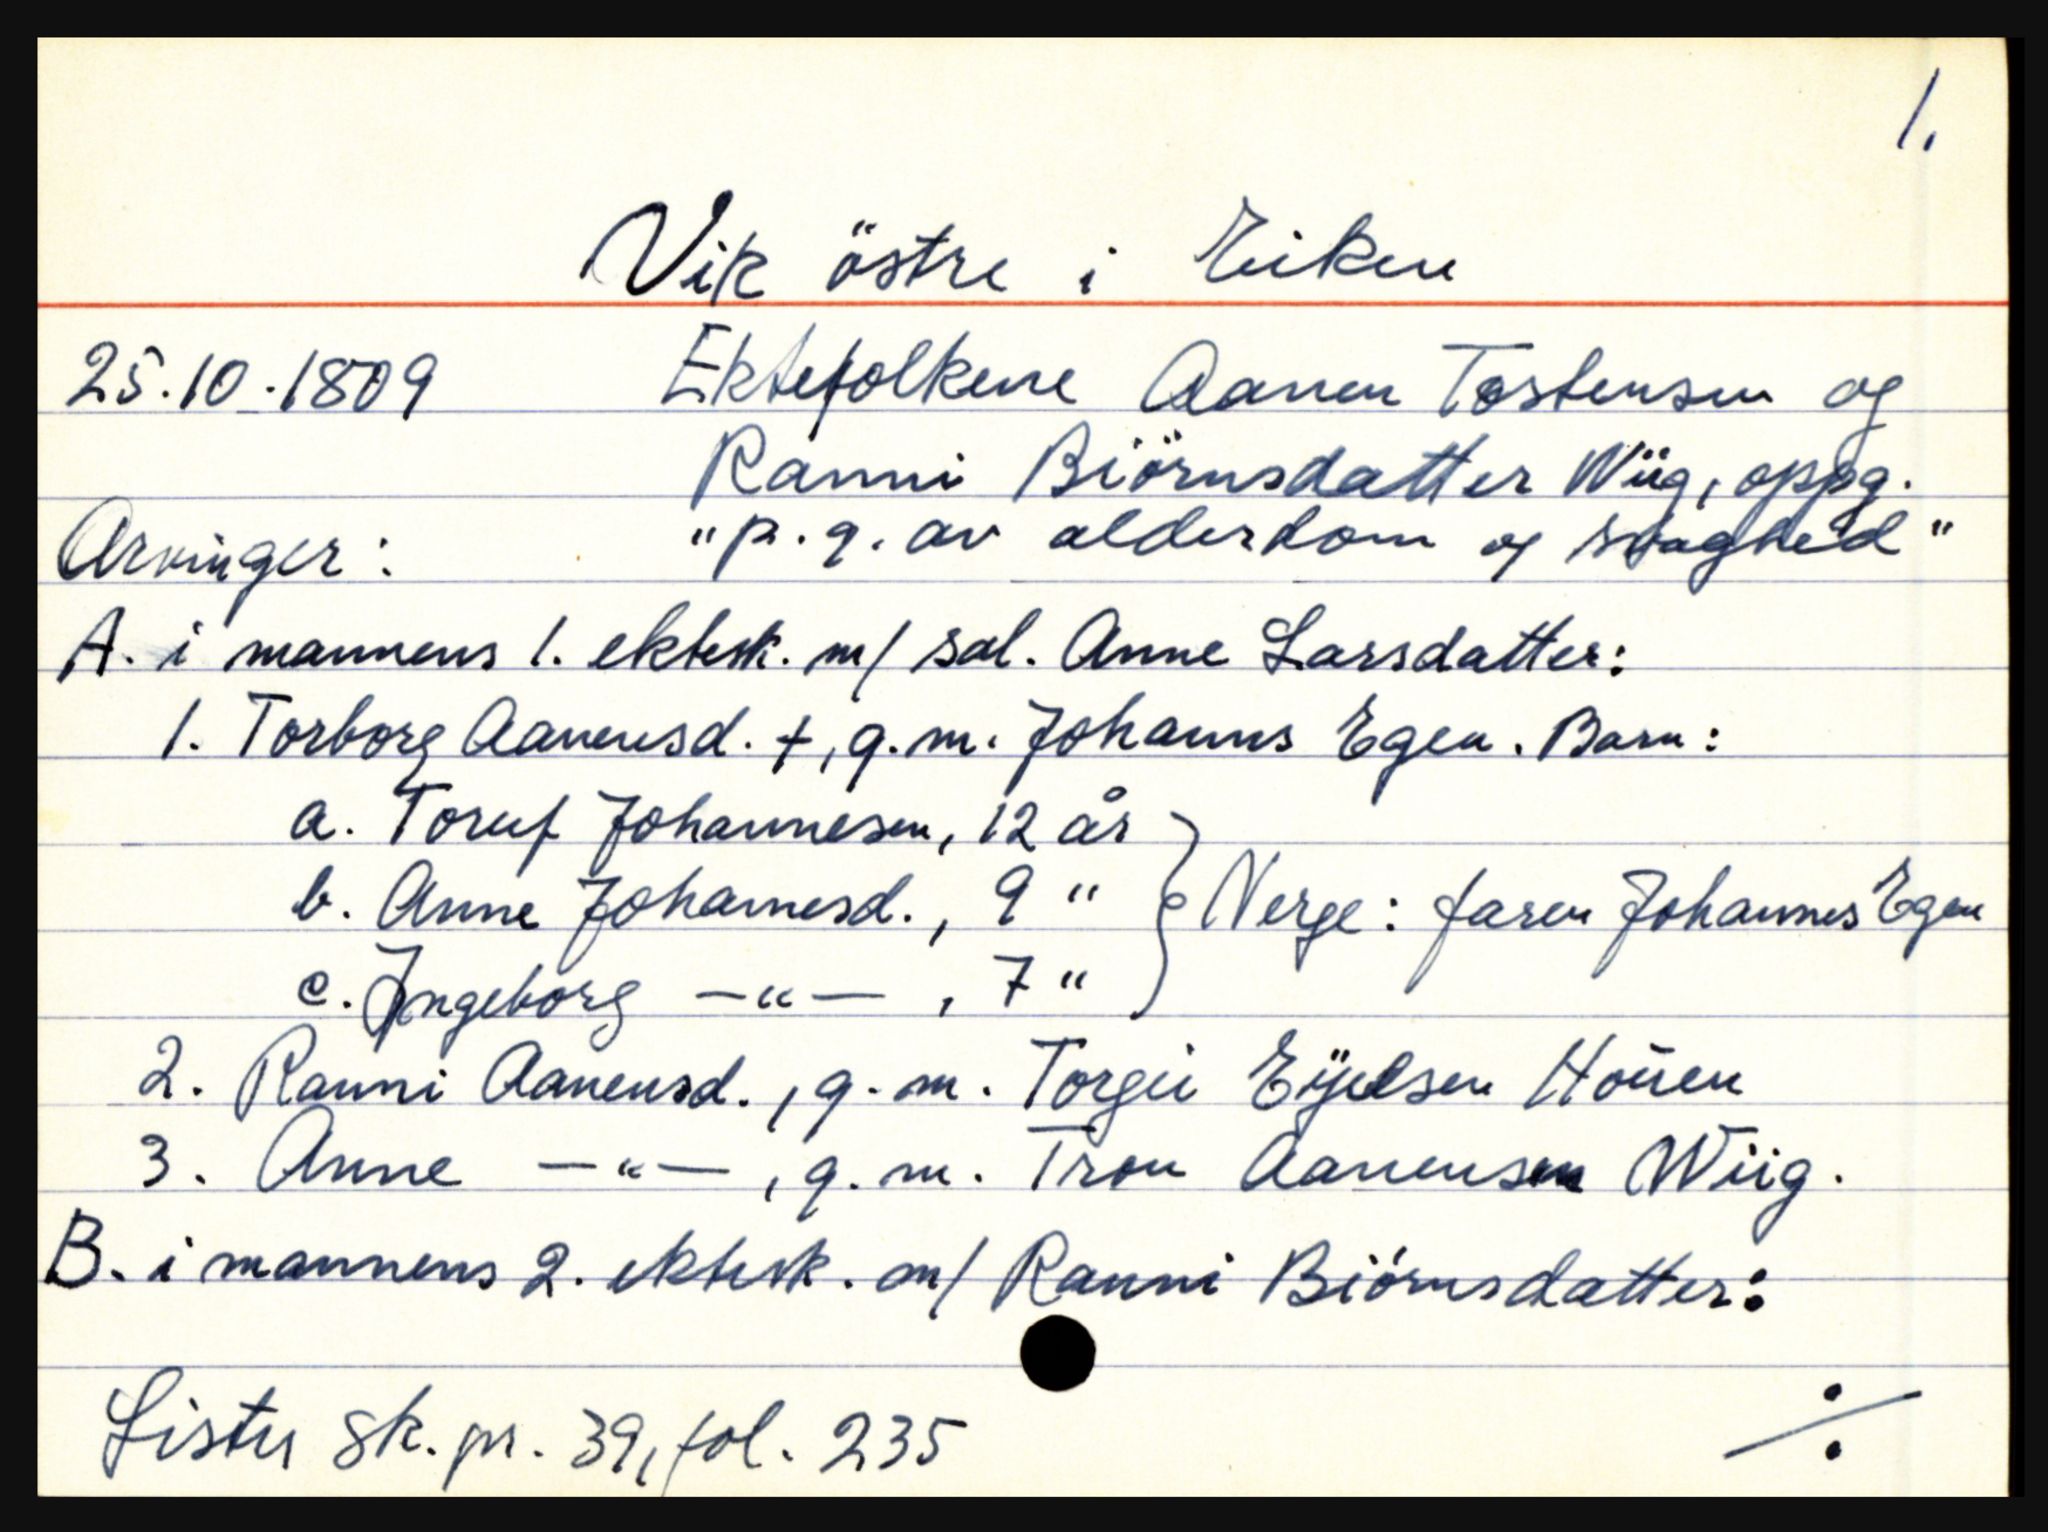 1.
Vik östre i Eiken
25.10.1809 Ektefolkene Aanen Tostensen og
Ranni Biörnsdatter Wiig, oppg.
Arvinger: "p. g. av alderdom og svaghed"
A. i mannens 1. ektesk. m/ sal. Anne Larsdatter:
1. Torborg Aanensd. +, g.m. Johannes Egen. Barn:
a. Toruf Johannesen, 12 år
b. Anne Johannesd., 9 " } Verge: faren Johannes Egen
c. Ingeborg —"— , 7 "
2. Ranni Aanensd., g.m. Torgii Eÿelsen Hoüen
3. Anne —"— , g.m. Tron Aanensen Wiig.
B. i mannens 2. ektesk. m/ Ranni Biörnsdatter:
Lister sk. pr. 39, fol. 235 ·/·